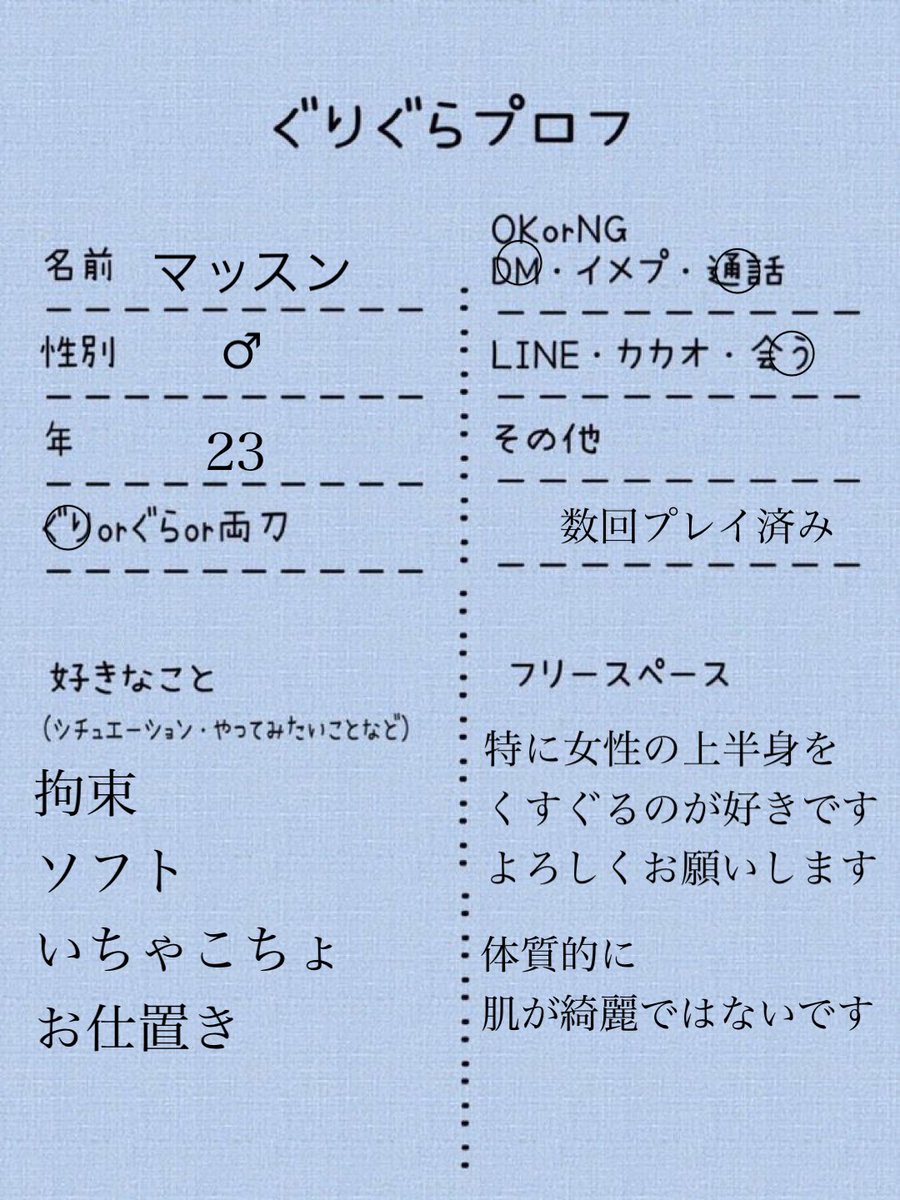 ぐりぐらプロフ
名前 マッスン
性別 ♂
年 23
ぐりorぐらor両刀
好きなこと
(シチュエーション・やってみたいことなど)
拘束
ソフト
いちゃこちょ
お仕置き
OKorNG
DM・イメプ・通話
LINE・カカオ・会う
その他
数回プレイ済み
フリースペース
特に女性の上半身を
くすぐるのが好きです
よろしくお願いします
体質的に
肌が綺麗ではないです